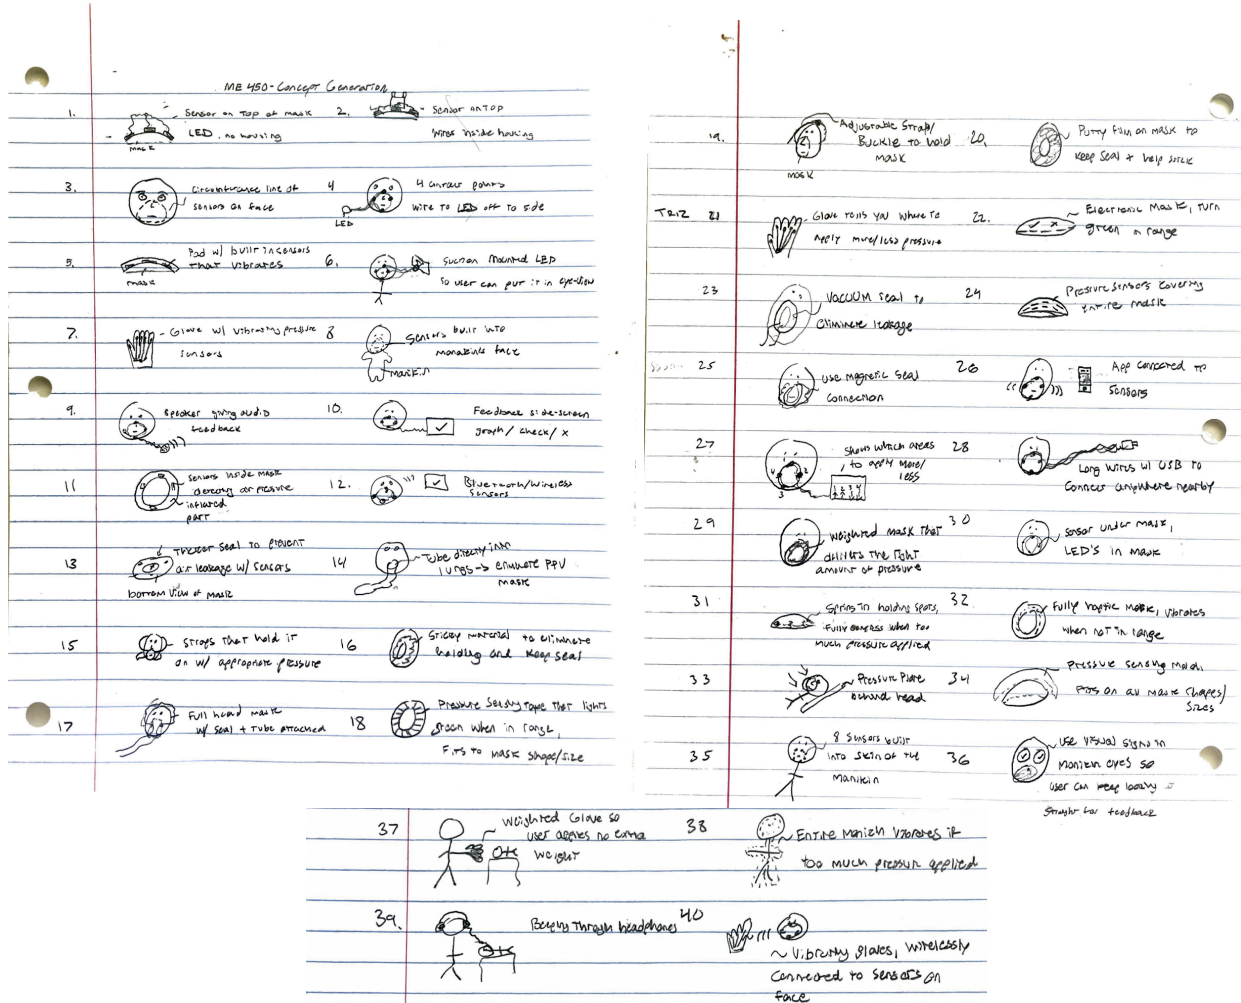 ME 450 - Concept Generation
1.
Sensor on Top of mask
LED, no housing
mask
2.
Sensor on top
wires inside housing
3.
Circumfrance line of
sensors on face
4
4 contact points
wire to LED off to side
LED
5.
Pad w/ built in sensors
that vibrates
mask
6.
Suction mounted LED
so user can put it in eye-view
7.
Glove w/ vibrating pressure
sensors
8
Sensors built into
manakins face
9.
Speaker giving audio
feedback
10.
Feedback side-screen
graph / check / x
11
sensors inside mask
detecting air pressure
inflated
part
12.
Bluetooth/wireless
sensors
13
Thicker seal to prevent
air leakage w/ sensors
bottom view of mask
14
Tube directly into
lungs -> eliminate PPV
mask
15
Straps that hold it
on w/ appropriate pressure
16
Sticky material to eliminate
holding and keep seal
17
Full head mask
w/ seal + tube attached
18
Pressure sensing tape that lights
green when in range,
Fits to mask shape/size
19.
Adjustable strap/
Buckle to hold
mask
mask
20.
Putty film on mask to
keep seal + help stick
TRIZ 21
Glove tells you where to
apply more/less pressure
22.
Electronic mask, turn
green in range
23
Vacuum seal to
eliminate leakage
24
Pressure sensors covering
entire mask
25
use magnetic seal
connection
26
App connected to
sensors
27
Shows which areas
to apply more/
less
4 1 2 3
1 2 3 4
28
Long wires w/ USB to
connect anywhere nearby
29
weighted mask that
delivers the right
amount of pressure
30
sensor under mask,
LED's in mask
31
Springs in holding spots,
Fully compress when too
much pressure applied
32.
Fully haptic mask, vibrates
when not in range
33
Pressure Plate
behind head
34
Pressure sensing mold,
Fits on all mask shapes/
sizes
35
8 sensors built
into skin of the
Manikin
36
use visual signs in
manikin eyes so
user can keep looking
straight for feedback
37
Weighted Glove so
user applies no extra
weight
38
Entire Manikin vibrates if
too much pressure applied
39.
Beeping through headphones
40
~ Vibrating gloves, wirelessly
connected to sensors on
face